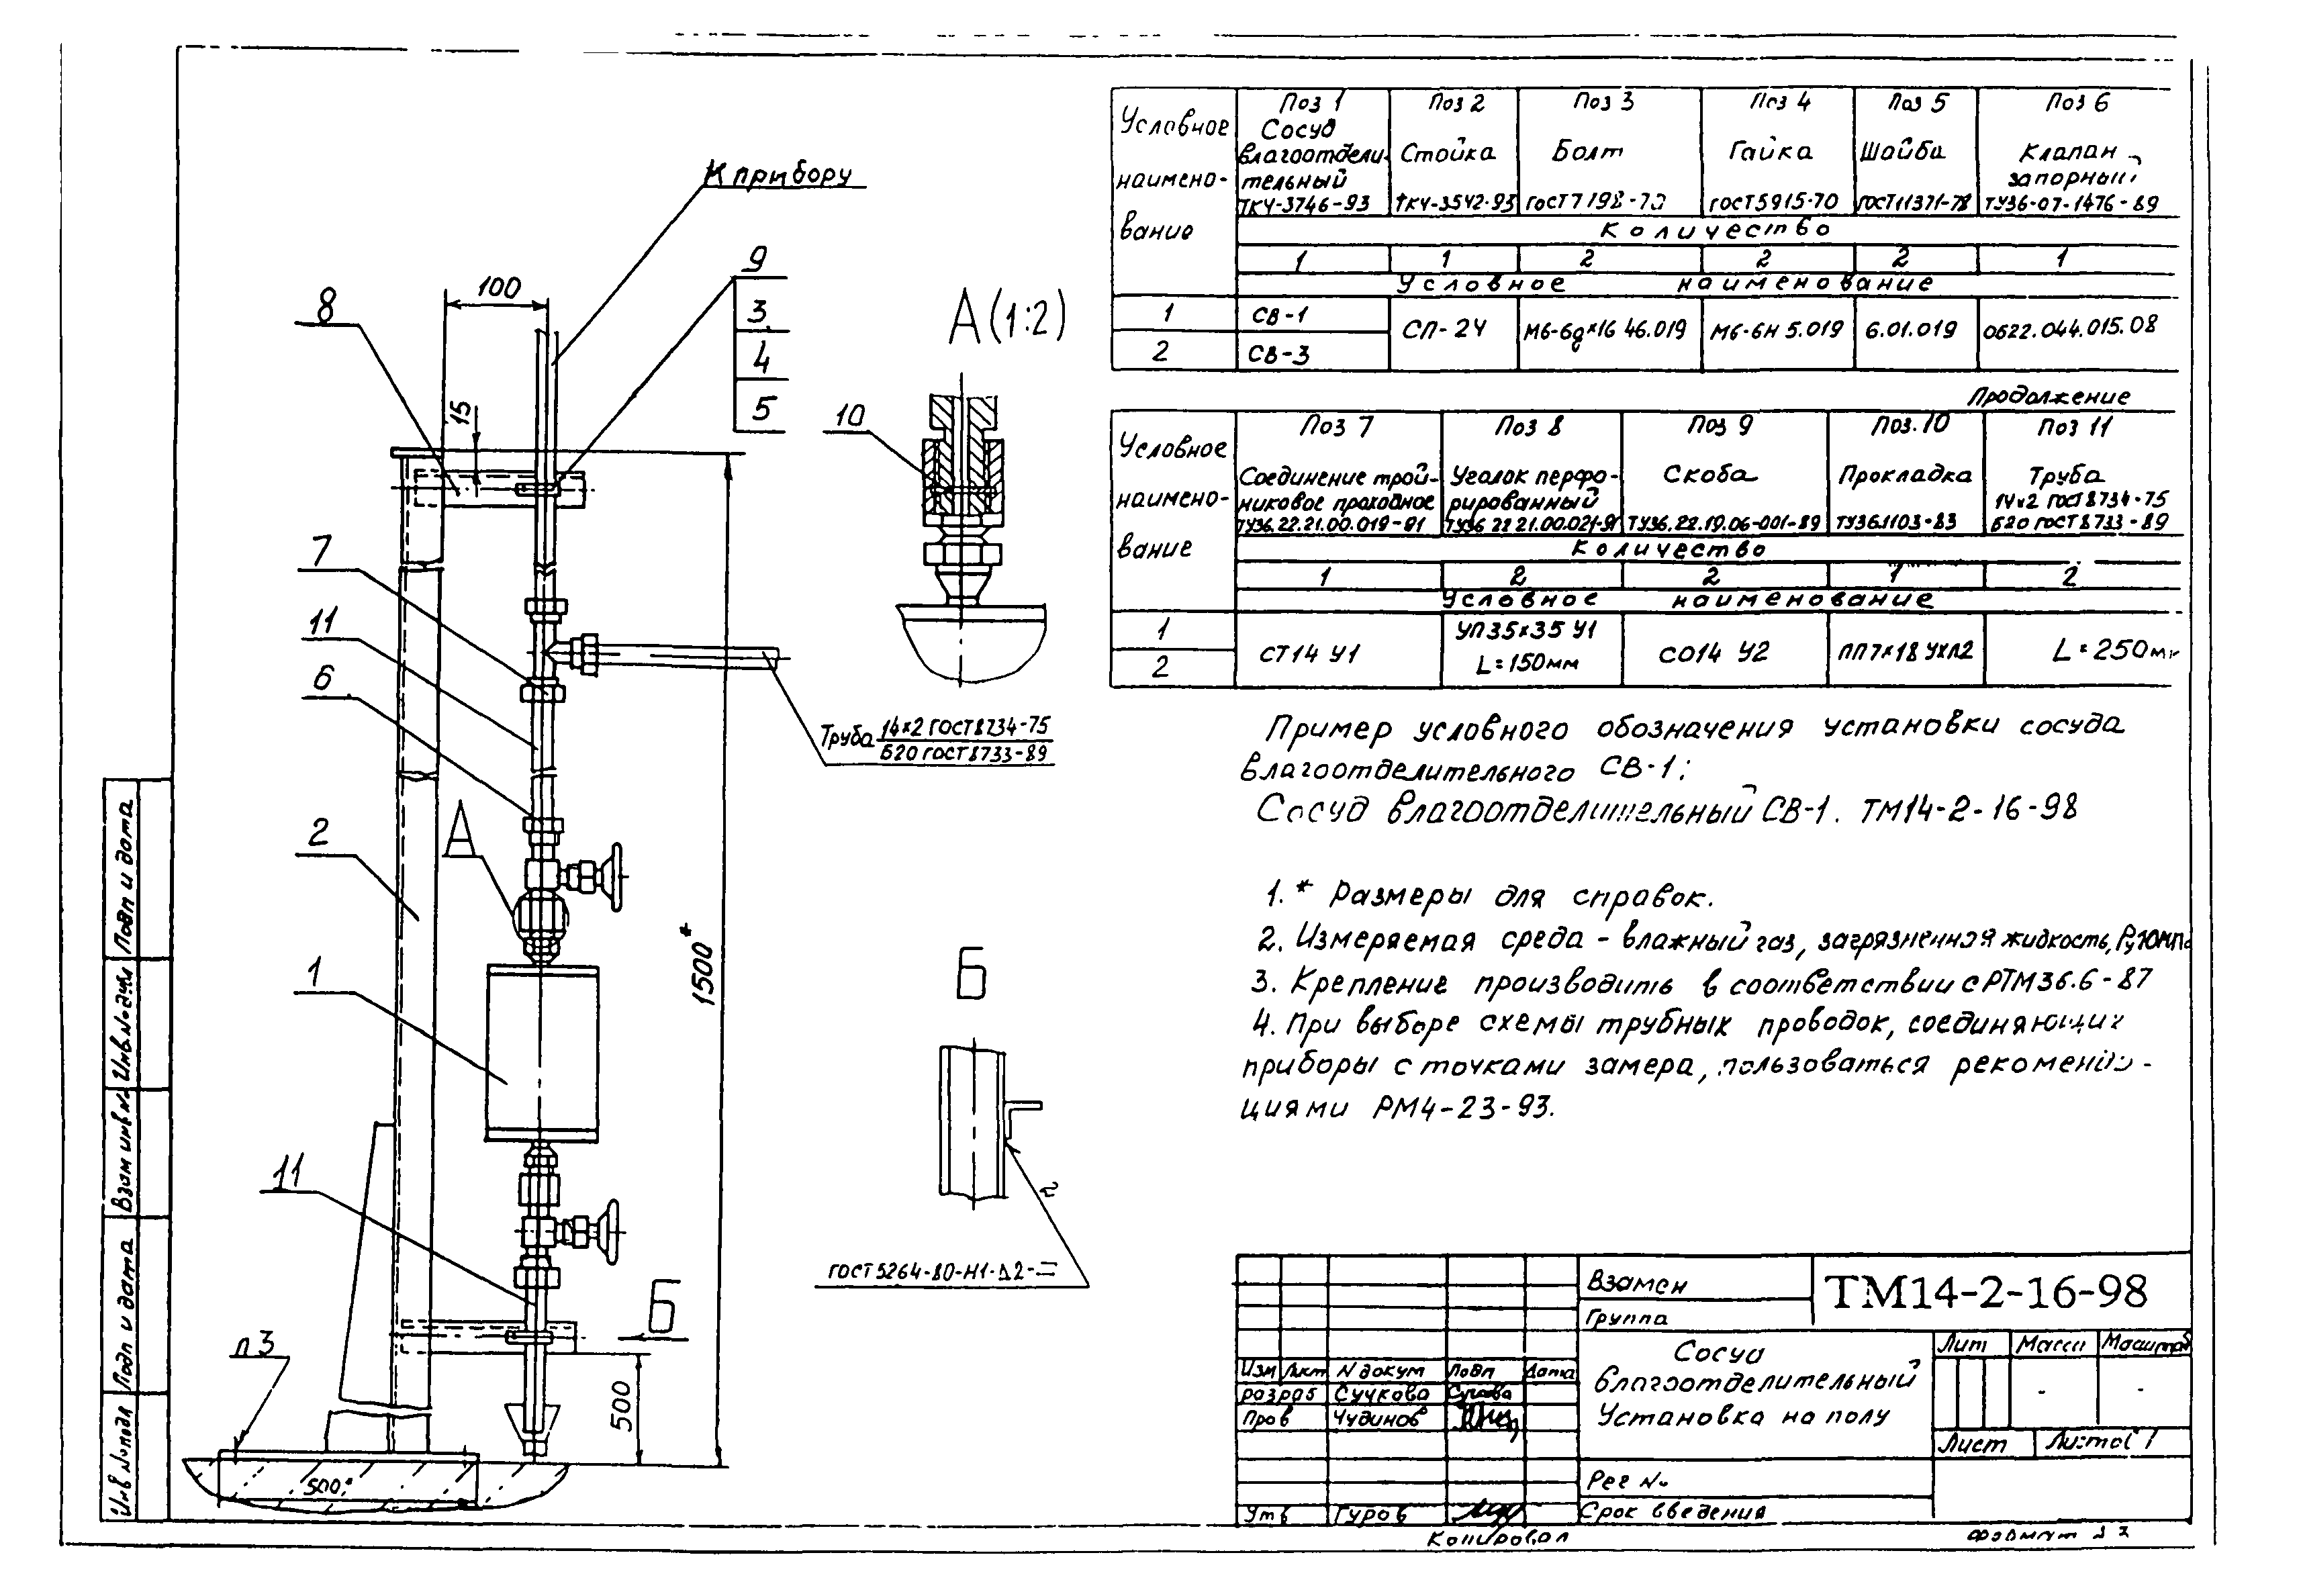 К прибору
9
3
4
5
100
8
15
7
11
6
2
А
1
11
п3
1500*
500
500*
Б
А (1:2)
10
Труба 14×2 ГОСТ 8734-75
Б20 ГОСТ 8733-89
Б
ГОСТ 5264-80-Н1-Δ2-
Условное наименование
Поз 1 Поз 2 Поз 3 Поз 4 Поз 5 Поз 6
Сосуд влагоотделительный Стойка Болт Гайка Шайба Клапан запорный
ТК4-3746-93 ТК4-3542-93 ГОСТ 7798-70 ГОСТ 5915-70 ГОСТ 11371-78 ТУ36-07-1476-89
Количество
1 1 2 2 2 1
Условное наименование
1 СВ-1 СП-24 М6-6g×16 46.019 М6-6Н 5.019 6.01.019 0622.044.015.08
2 СВ-3
Продолжение
Условное наименование
Поз 7 Поз 8 Поз 9 Поз.10 Поз 11
Соединение тройниковое проходное Уголок перфорированный Скоба Прокладка Труба
14×2 ГОСТ 8734-75
ТУ36.22.21.00.019-91 ТУ36 22 21.00.021-91 ТУ36.22.19.06-001-89 ТУ36.1103-83 Б20 ГОСТ 8733-89
Количество
1 2 2 1 2
Условное наименование
1 СТ14 У1 УП35×35 У1 СО14 У2 ПП7×18 УХЛ2 L=250мм
2 L=150мм
Пример условного обозначения установки сосуда
влагоотделительного СВ-1:
Сосуд влагоотделительный СВ-1. ТМ14-2-16-98
1.* Размеры для справок.
2. Измеряемая среда - влажный газ, загрязненная жидкость,
3. Крепление производить в соответствии с РТМ36.6-87
4. При выборе схемы трубных проводок, соединяющих
приборы с точками замера, пользоваться рекоменда-
циями РМ4-23-93.
Взамен
Группа
ТМ14-2-16-98
Сосуд
влагоотделительный
Установка на полу
Лит Масса Масштаб
- -
Лист Листов 1
Изм Лист N докум Подп Дата
разраб Сучкова
Пров Чудинов
Утв Гуров
Рег №
Срок введения
Копировал
Формат А3
Подп и дата
Инв.N дубл
Взам инв N
Подп и дата
Инв N подл